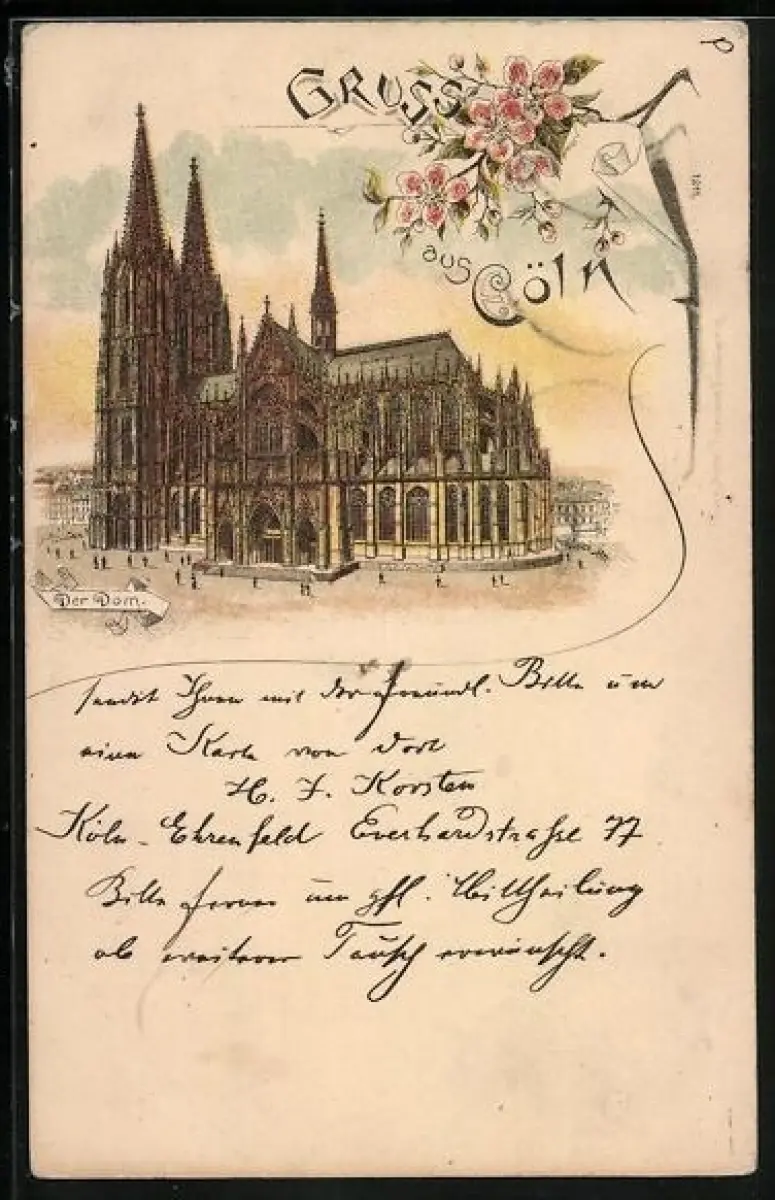 Gruss
aus Cöln
P
Der Dom.
sendet Ihnen mit der freundl. Bitte um
eine Karte von dort
H. J. Korsten
Köln - Ehrenfeld Everhardstraße 77
Bitte ferner um gfl. Mittheilung
ob weiterer Tausch erwünscht.